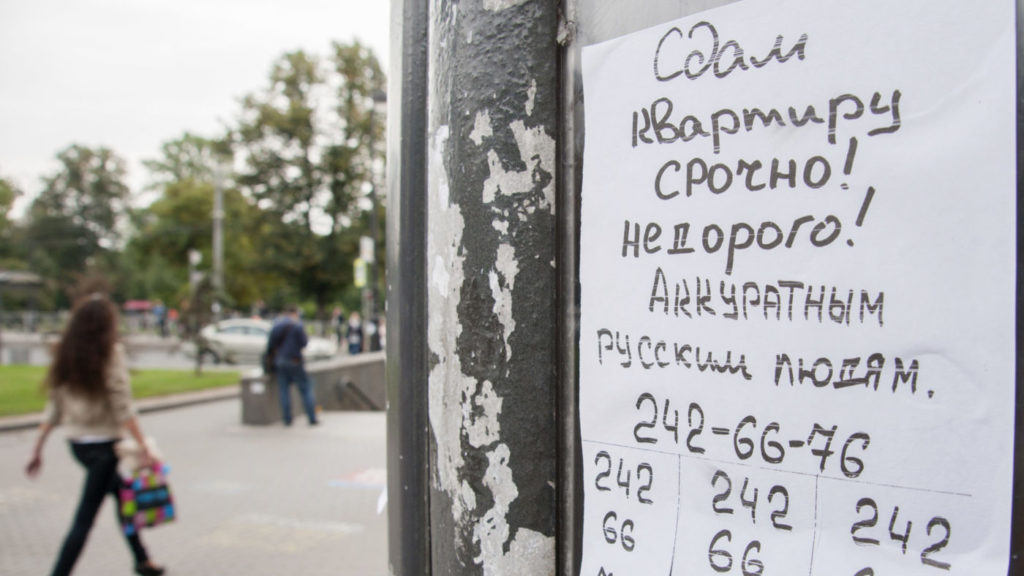 Сдам
квартиру
срочно!
недорого!
Аккуратным
русским людям.
242-66-76
242 242 242
66 66